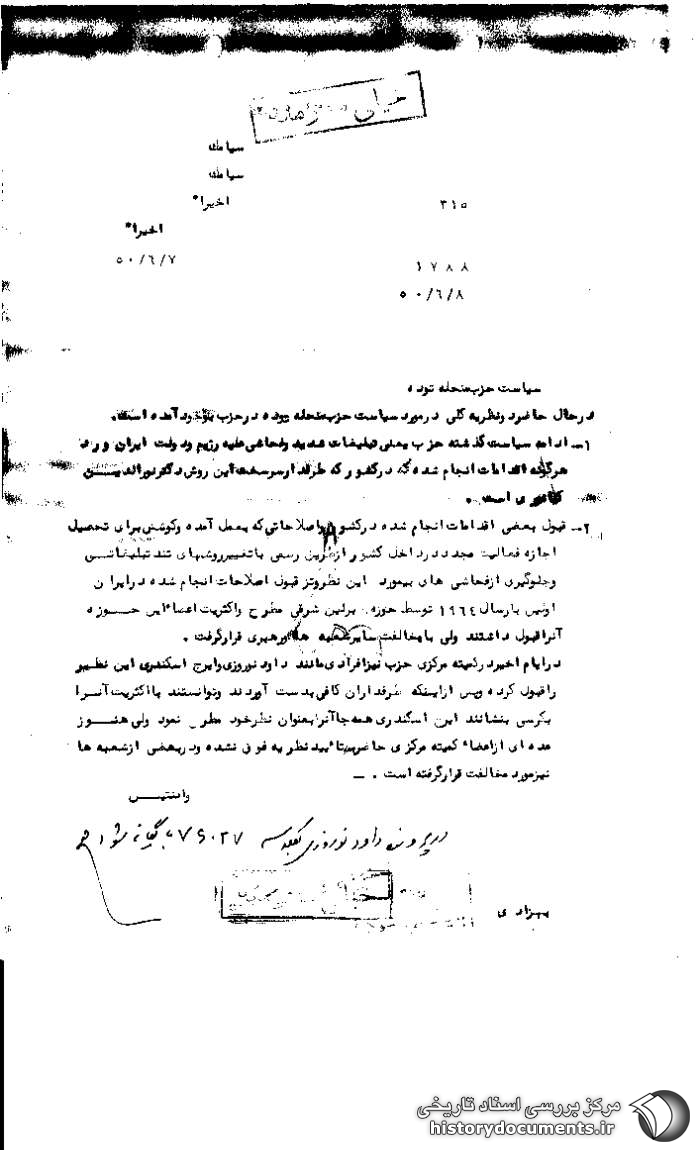 خیلی محرمانه
سیامك
سیامك
اخیرا"
۳۱۵
اخیرا"
۵۰/۶/۷
۱۷۸۸
۵۰/۶/۸
سیاست حزب منحله توده
در حال حاضر دو نظریه کلی در مورد سیاست حزب منحله توده در حزب بوجود آمده است.
۱ـ ادامه سیاست گذشته حزب یعنی تبلیغات شدید و فحاشی علیه رژیم و دولت ایران و رد
هرگونه اقدامات انجام شده که در کشور که طرفدار سرسخت این روش دکتر نورالدیــن
کیانوری است .
۲ـ قبول بعضی اقدامات انجام شده در کشور و اصلاحاتی که بعمل آمده و کوشش برای تحصیل
اجازه فعالیت مجدد در داخل کشور از طریق رسمی با تغییر روشهای تند تبلیغاتــی
و جلوگیری از فحاشی های بیمورد این نظر و تز قبول اصلاحات انجام شده در ایران
اولین بار سال ۱۹۶۴ توسط حوزه برلین شرقی مطرح و اکثریت اعضا این حــوزه
آنرا قبول داشتند ولی با مخالفت سایر شعبه ها و رهبری قرار گرفت .
در ایام اخیر در کمیته مرکزی حزب نیز افرادی مانند داود نوروزی و ایرج اسکندری این نظــر
را قبول کرده و پس از اینکه طرفداران کافی بدست آوردند و توانستند با اکثریت آنــرا
بکرسی بنشانند ایرج اسکندری همه جا آنرا بعنوان نظر خود مطرح نمود ولی هنــوز
عده ای از اعضاء کمیته مرکزی حاضر بتائید نظریه فوق نشده و در بعضی از شعبه ها
نیز مورد مخالفت قرار گرفته است . ــ
در پرونده داود نوروزی بکلاسه ۷۶۰۲۷ بایگانی شود
بهزادی
مرکز بررسی اسناد تاریخی
historydocuments.ir